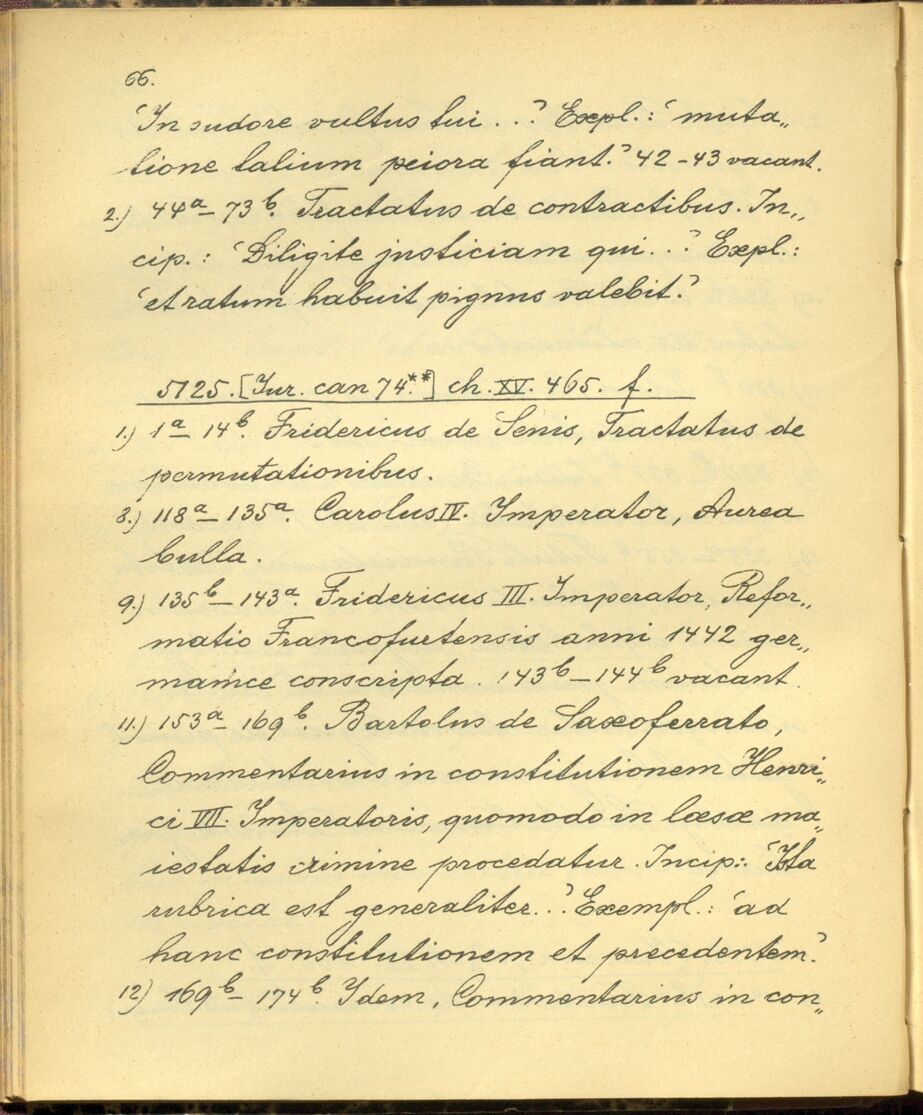 66.
‘In sudore vultus tui . . .’ Expl.: ‘muta„
tione talium peiora fiant.’ 42–43 vacant.
2.) 44ᵃ–73ᵇ. Tractatus de contractibus. In„
cip.: ‘Diligite justiciam qui . . .’ Expl.:
‘et ratum habuit pignus valebit.’
5125. [Jur. can 74.**] ch. XV. 465. f.
1.) 1ᵃ–14ᵇ. Fridericus de Senis, Tractatus de
permutationibus.
8.) 118ᵃ–135ᵃ. Carolus IV. Imperator, Aurea
bulla.
9.) 135ᵇ–143ᵃ. Fridericus III. Imperator, Refor„
matio Francofurtensis anni 1442 ger„
manice conscripta. 143ᵇ–144ᵇ vacant.
11.) 153ᵃ–169ᵇ. Bartolus de Saxoferrato,
Commentarius in constitutionem Henri„
ci VII. Imperatoris, quomodo in læsæ ma„
iestatis crimine procedatur. Incip.: ‘Ista
rubrica est generaliter. . .’ Exempl.: ‘ad
hanc constitutionem et precedentem.’
12) 169ᵇ–174ᵇ. Idem, Commentarius in con„